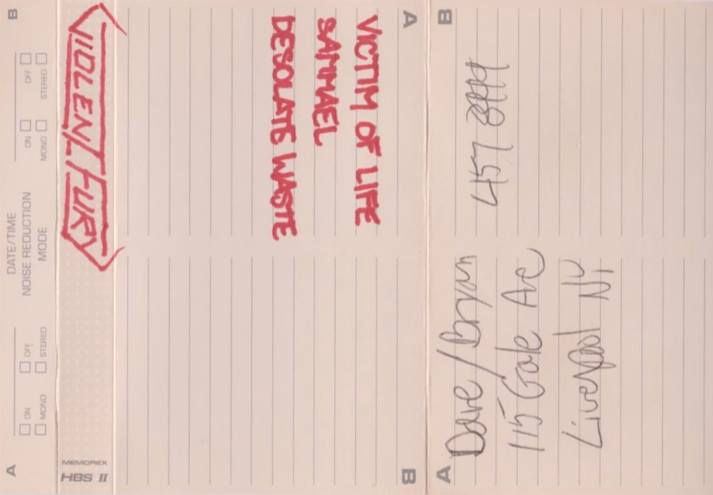 B
A
DATE/TIME
NOISE REDUCTION
ON
OFF
ON
OFF
MODE
MONO
STEREO
MONO
STEREO
VIOLENT FURY
MEMOREX
HBS II
A
B
VICTIM OF LIFE
SAMMAEL
DESOLATE WASTE
B
A
457 8499
Dave/Bryan
115 Gale Ave
Liverpool NY